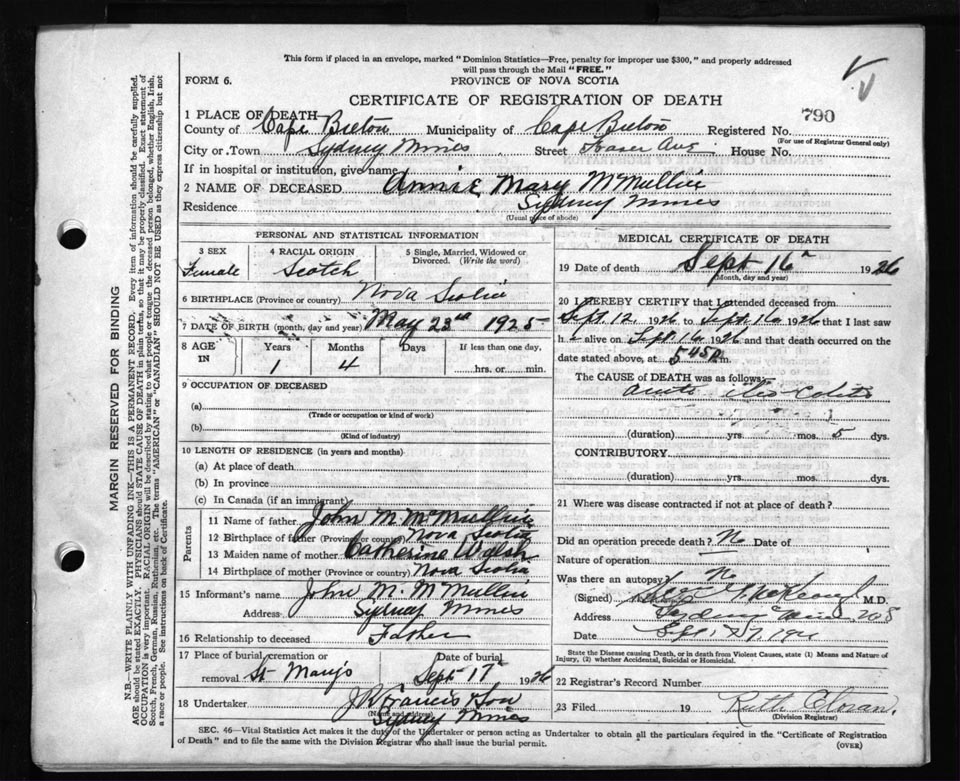 This form if placed in an envelope, marked "Dominion Statistics—Free, penalty for improper use $300," and properly addressed
will pass through the Mail "FREE."
FORM 6.
PROVINCE OF NOVA SCOTIA
CERTIFICATE OF REGISTRATION OF DEATH
790
1 PLACE OF DEATH
County of Cape Breton Municipality of Cape Breton Registered No.
(For use of Registrar General only)
City or Town Sydney Mines Street Fraser Ave House No.
If in hospital or institution, give name
2 NAME OF DECEASED Annie Mary McMullin
Residence Sydney Mines
(Usual place of abode)
PERSONAL AND STATISTICAL INFORMATION
3 SEX
Female
4 RACIAL ORIGIN
Scotch
5 Single, Married, Widowed or
Divorced. (Write the word)
6 BIRTHPLACE (Province or country) Nova Scotia
7 DATE OF BIRTH (month, day and year) May 23rd 1925
8 AGE
IN
Years
1
Months
4
Days
If less than one day.
hrs. or min.
9 OCCUPATION OF DECEASED
(a)
(Trade or occupation or kind of work)
(b)
(Kind of industry)
10 LENGTH OF RESIDENCE (in years and months)
(a) At place of death
(b) In province
(c) In Canada (if an immigrant)
Parents
11 Name of father John M McMullin
12 Birthplace of father (Province or country) Nova Scotia
13 Maiden name of mother Catherine Walsh
14 Birthplace of mother (Province or country) Nova Scotia
15 Informant's name John M. McMullin
Address Sydney Mines
16 Relationship to deceased Father
17 Place of burial, cremation or
removal St Mary's
Date of burial
Sept 17 1926
18 Undertaker J R Francis & Son
(Name and address)
Sydney Mines
MEDICAL CERTIFICATE OF DEATH
19 Date of death Sept 16 1926
(Month, day and year)
20 I HEREBY CERTIFY that I attended deceased from
Sept. 12 1926 to Sept. 16 1926 that I last saw
h alive on Sept 16 1926 and that death occurred on the
date stated above, at 5 45 m.
The CAUSE OF DEATH was as follows:
acute ileo-Colitis
(duration) yrs. mos. 5 dys.
CONTRIBUTORY
(duration) yrs. mos. dys.
21 Where was disease contracted if not at place of death?
Did an operation precede death? No Date of
Nature of operation
Was there an autopsy? No
(Signed) McKeough M.D.
Address Sydney Mines
Date Sept. 17
State the Disease causing Death, or in death from Violent Causes, state (1) Means and Nature of
Injury, (2) whether Accidental, Suicidal or Homicidal.
22 Registrar's Record Number
23 Filed 19 Ruth Cloran.
(Division Registrar)
SEC. 46—Vital Statistics Act makes it the duty of the Undertaker or person acting as Undertaker to obtain all the particulars required in the "Certificate of Registration
of Death" and to file the same with the Division Registrar who shall issue the burial permit.
(OVER)
MARGIN RESERVED FOR BINDING
N.B.—WRITE PLAINLY, WITH UNFADING INK—THIS IS A PERMANENT RECORD. Every item of information should be carefully supplied.
AGE should be stated EXACTLY. PHYSICIANS should STATE CAUSE OF DEATH in plain terms, so that it may be properly classified. Exact statement of
OCCUPATION is very important. RACIAL ORIGIN will be described by stating to what people or tongue the deceased person belonged, whether English, Irish,
Scotch, French, German, Russian, Ruthenian, etc. The terms "AMERICAN" or "CANADIAN" SHOULD NOT BE USED as they express citizenship but not
a race or people. See instructions on back of Certificate.